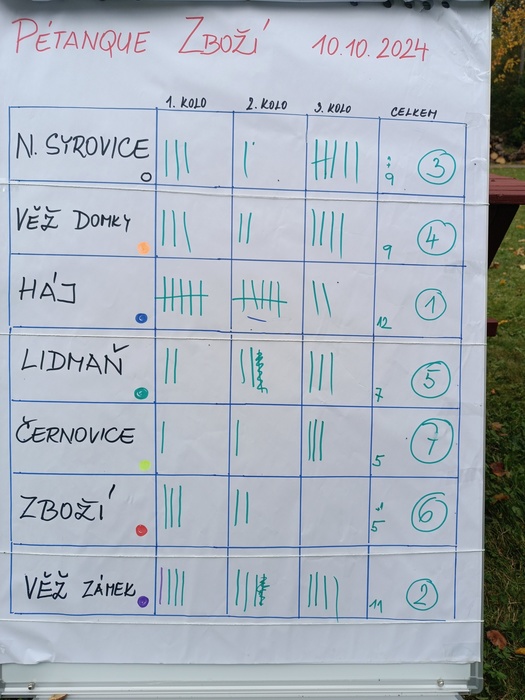 PÉTANQUE ZBOŽÍ 10.10.2024
1. KOLO 2. KOLO 3. KOLO CELKEM
N. SYROVICE 9 3
VĚŽ DOMKY 9 4
HÁJ 12 1
LIDMAŇ 7 5
ČERNOVICE 5 7
ZBOŽÍ 5 6
VĚŽ ZÁMEK 11 2